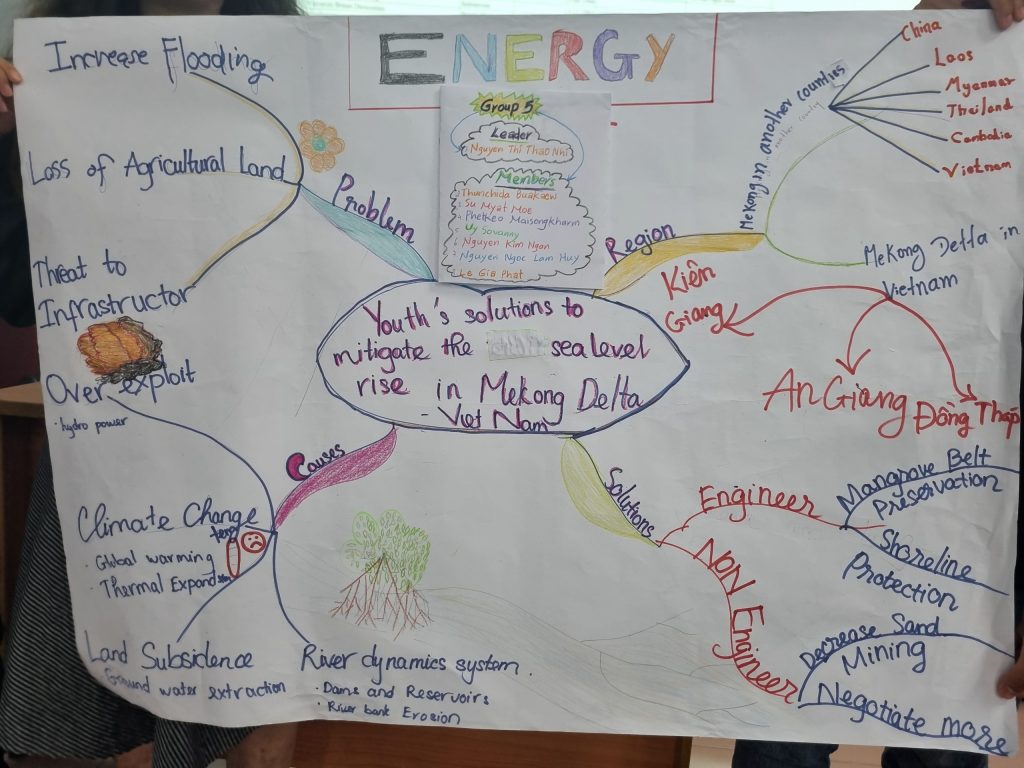 ENERGY
Group 5
Leader
Nguyen Thi Thao Nhi
Members
Thunchida Buakaew
Su Myat Moe
Phetkeo Maisongkham
Uy Sovanny
Nguyen Kim Ngan
Nguyen Ngoc Lam Huy
Le Gia Phat
Youth's solutions to
mitigate the
sea level
rise in Mekong Delta
- Viet Nam
Problem
Increase Flooding
Loss of Agricultural Land
Threat to
Infrastructor
Region
Mekong in another counties
another county
China
Laos
Myanmar
Thailand
Cambodia
Vietnam
MeKong Delta in
Vietnam
Kiên
Giang
An Giang
Đồng Tháp
Causes
Over exploit
· hydro power
Climate Change
temp
· Global warming
· Thermal Expand
Land Subsidence
Ground water extraction
River dynamics system.
· Dams and Reservoirs
· River bank Erosion
Solutions
Engineer
Mangrove Belt
Preservation
Shoreline
Protection
NON Engineer
Decrease Sand
Mining
Negotiate more